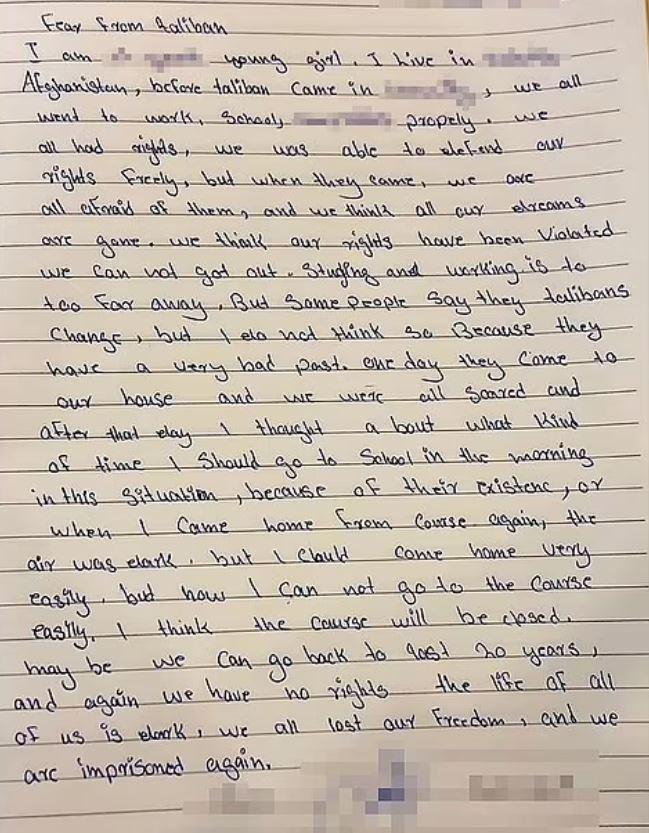 Fear from taliban
I am young girl. I live in
Afghanistan, before taliban came in , we all
went to work, School, properly. we
all had rights, we was able to defend our
rights freely, but when they came, we are
all afraid of them, and we think all our dreams
are gone. we think our rights have been Violated
we can not got out. Studing and working is to
too far away. But Some people Say they talibans
Change, but I do not think so Because they
have a very bad past. one day they Come to
our house and we were all Scared and
after that day I thought a bout what kind
of time I Should go to School in the morning
in this situation, because of their existenc, or
when I came home from course again, the
air was dark. but I Could come home very
easily. but now I can not go to the course
easily. I think the course will be closed.
may be we can go back to last 20 years,
and again we have no rights the life of all
of us is dark, we all lost our freedom, and we
are imprisoned again.